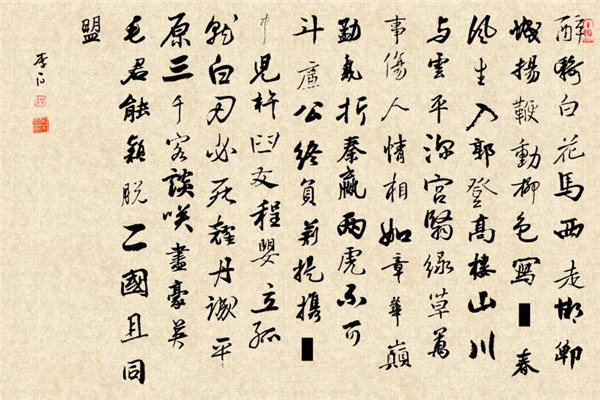 醉騎白花馬西走邯鄲
城揚鞭動柳色寫█春
風生入郭登高樓山川
與雲平深宮翳綠草萬
事傷人情相如章華巔
勐氣折秦嬴兩虎不可
斗廉公終負荊提攜█
中兒杵臼及程嬰立孤
就白刃必死耀丹誠平
原三千客談咲盡豪英
毛君能穎脫二國且同
盟
李白